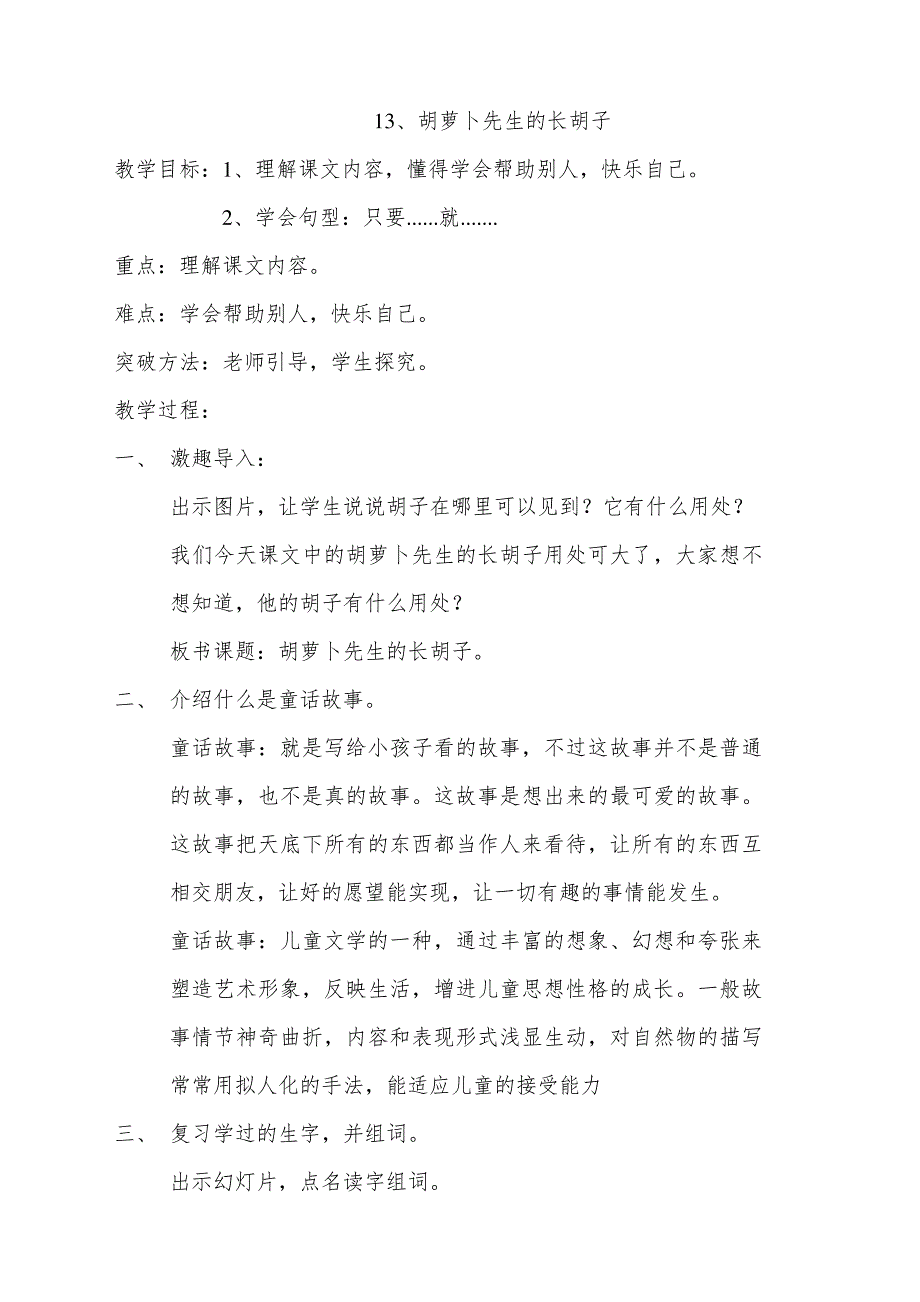 13、胡萝卜先生的长胡子
教学目标：1、理解课文内容，懂得学会帮助别人，快乐自己。
2、学会句型：只要......就.......
重点：理解课文内容。
难点：学会帮助别人，快乐自己。
突破方法：老师引导，学生探究。
教学过程：
一、 激趣导入：
出示图片，让学生说说胡子在哪里可以见到？它有什么用处？
我们今天课文中的胡萝卜先生的长胡子用处可大了，大家想不
想知道，他的胡子有什么用处？
板书课题：胡萝卜先生的长胡子。
二、 介绍什么是童话故事。
童话故事：就是写给小孩子看的故事，不过这故事并不是普通
的故事，也不是真的故事。这故事是想出来的最可爱的故事。
这故事把天底下所有的东西都当作人来看待，让所有的东西互
相交朋友，让好的愿望能实现，让一切有趣的事情能发生。
童话故事：儿童文学的一种，通过丰富的想象、幻想和夸张来
塑造艺术形象，反映生活，增进儿童思想性格的成长。一般故
事情节神奇曲折，内容和表现形式浅显生动，对自然物的描写
常常用拟人化的手法，能适应儿童的接受能力
三、 复习学过的生字，并组词。
出示幻灯片，点名读字组词。